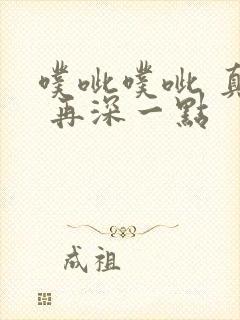 噗呲噗呲 真
再深一點
成祖